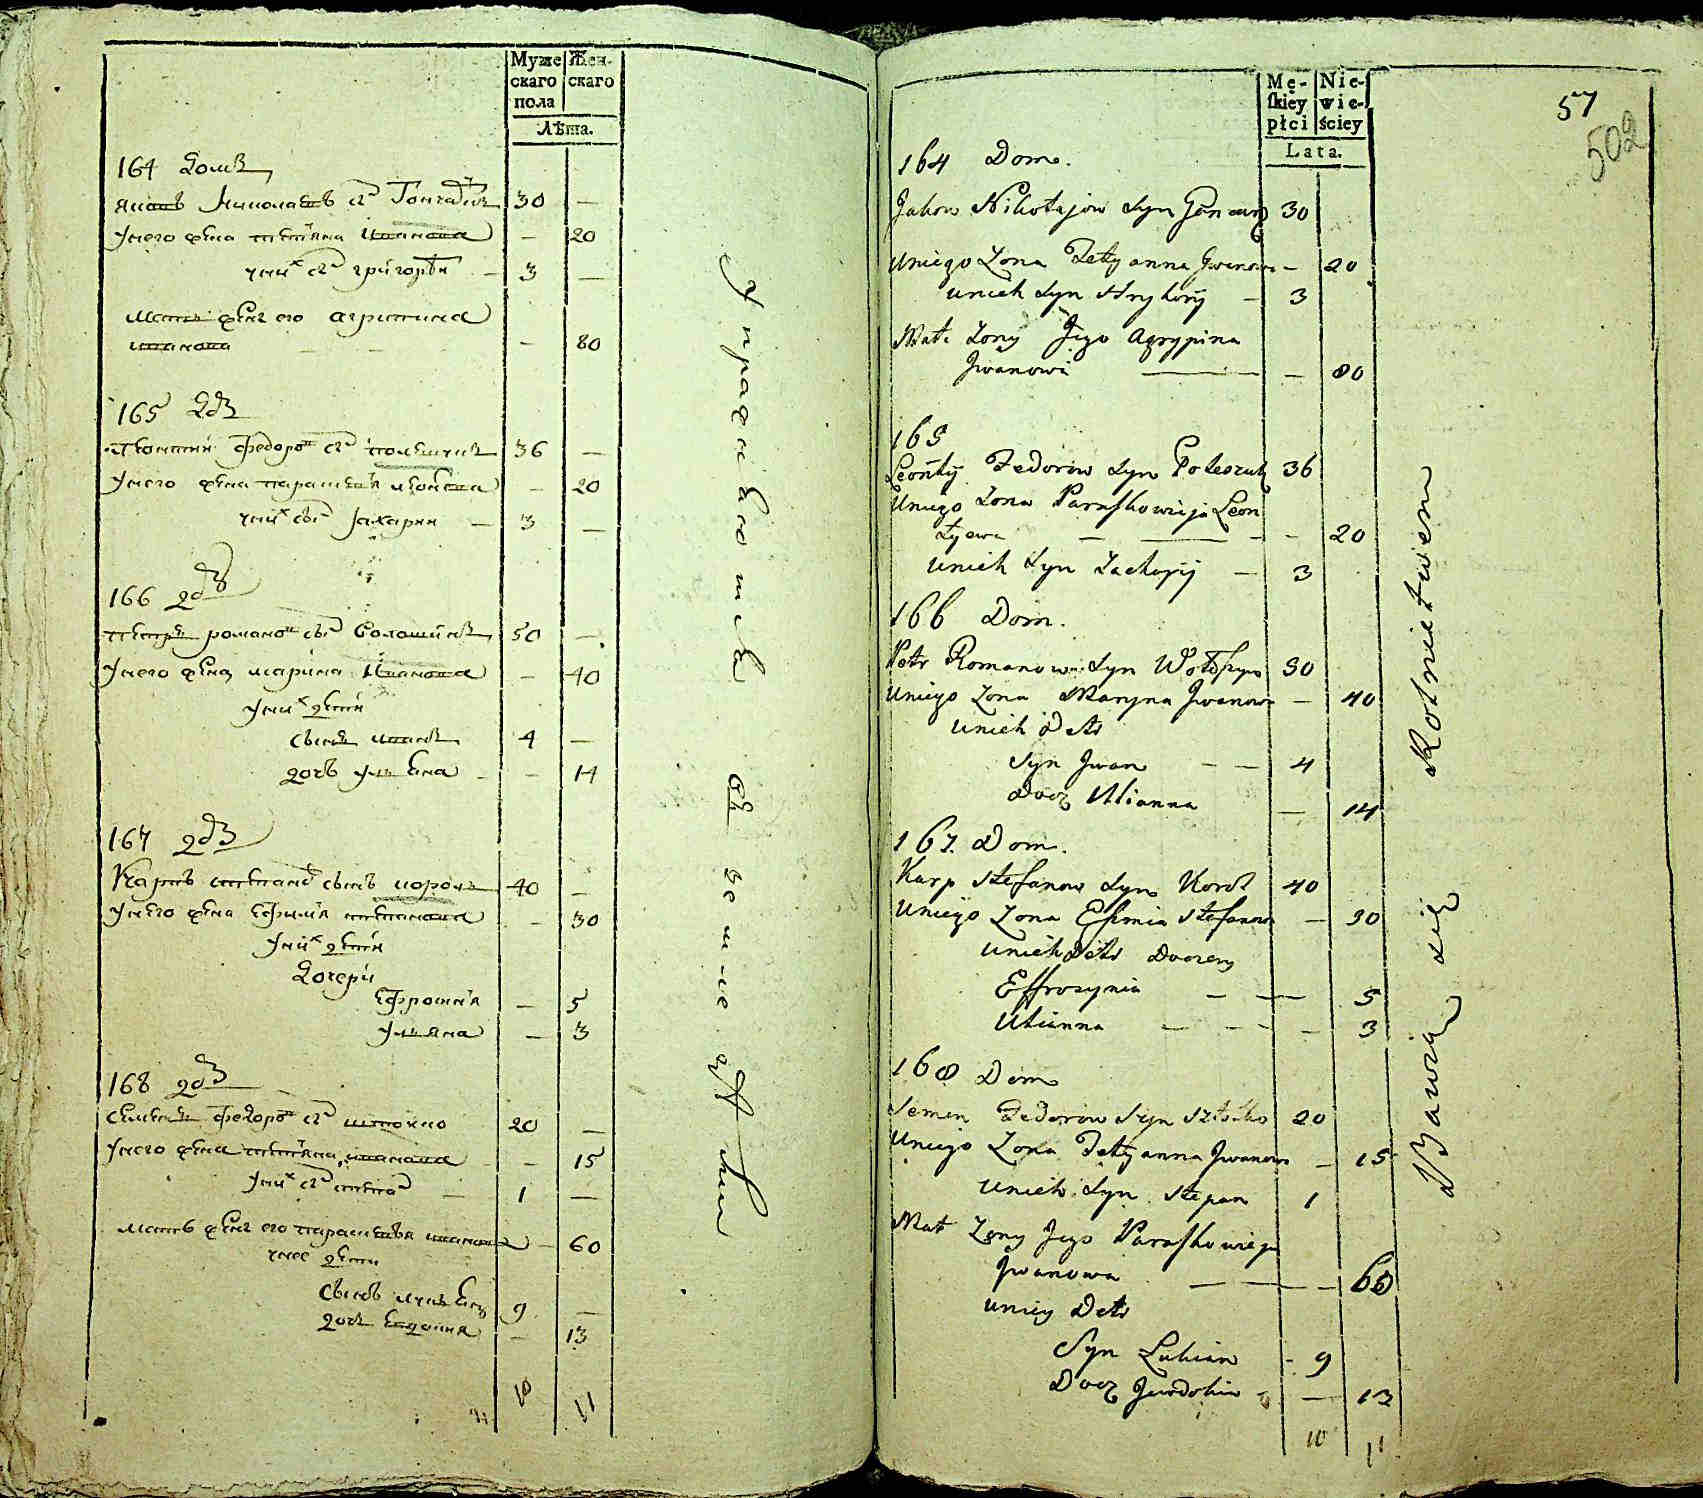 Муже
скаго
пола
Жен-
скаго
Лѣта.
164 домъ
яковъ Николаевъ сы҃ Гончаръ 30 —
у него жена татіяна Иванова — 20
у ни҃х сы҃ григорѣи — 3 —
мать жены его агрипина
иванова — 80
165 до҃
Леонтий федоро҃в сы҃ полещукъ 36 —
у него жена парашевия — 20
у ни҃х сы҃ Захарии — 3 —
166 до҃
петръ романо҃в сы҃ Волошинъ 50 —
у него жена марина Иванова — 40
у ни҃х дети
сынъ иванъ 4 —
дочь улиена — 14
167 до҃
Карпъ степановъ сынъ король 40 —
у него жена Ефимия степанова — 30
у ни҃х дети
Дочери
Ефросиния — 5
ульяна — 3
168 до҃
семенъ федоро҃в сы҃ 20 —
у него жена татіяна иванова — 15
у ни҃х сы҃ степа҃н — 1 —
мать жены его парашевия иванова — 60
у нее дети
сынъ 9 —
дочь Евдокия — 13
10 11
Упражняются въ земледѣлии
Mę-
ſkiey
płci
Nie-
wie-
ściey
Lata.
57
502
164 Dom.
Jakow Nikołajow Syn Gonczar 30
Uniego Zona Tetyanna Jwanowa — 20
unich Syn Hryhory — 3
Mat. Zony Jego Agrypina
Jwanowa — — 80
165
Leonty Fedorow Syn Poleszuk 36
Uniego Zona Paraſkowieja Leon
tyewa — — — — 20
unich Syn Zachary — 3
166 Dom.
Petr Romanow Syn Wołoszyn 50
Uniego Zona Maryna Jwanowa — 40
unich Deti
Syn Jwan — — 4
Docz Ulianna — 14
167 Dom.
Karp Stefanow Syn Korol 40
Uniego Zona Efimia Stefanowa — 30
unich Deti Doczery
Effrozynia — — — 5
Ulianna — — — — 3
168 Dom
Semen Fedorow Syn 20
Uniego Zona Tetyanna Jwanowa — 15
unich Syn Stepan 1
Mat Zony Jego Paraſkowieja
Jwanowa — — — 60
uniey Deti
Syn Lukian - 9
Docz Jewdokia — 13
10 11
Bawią się Rolnictwem